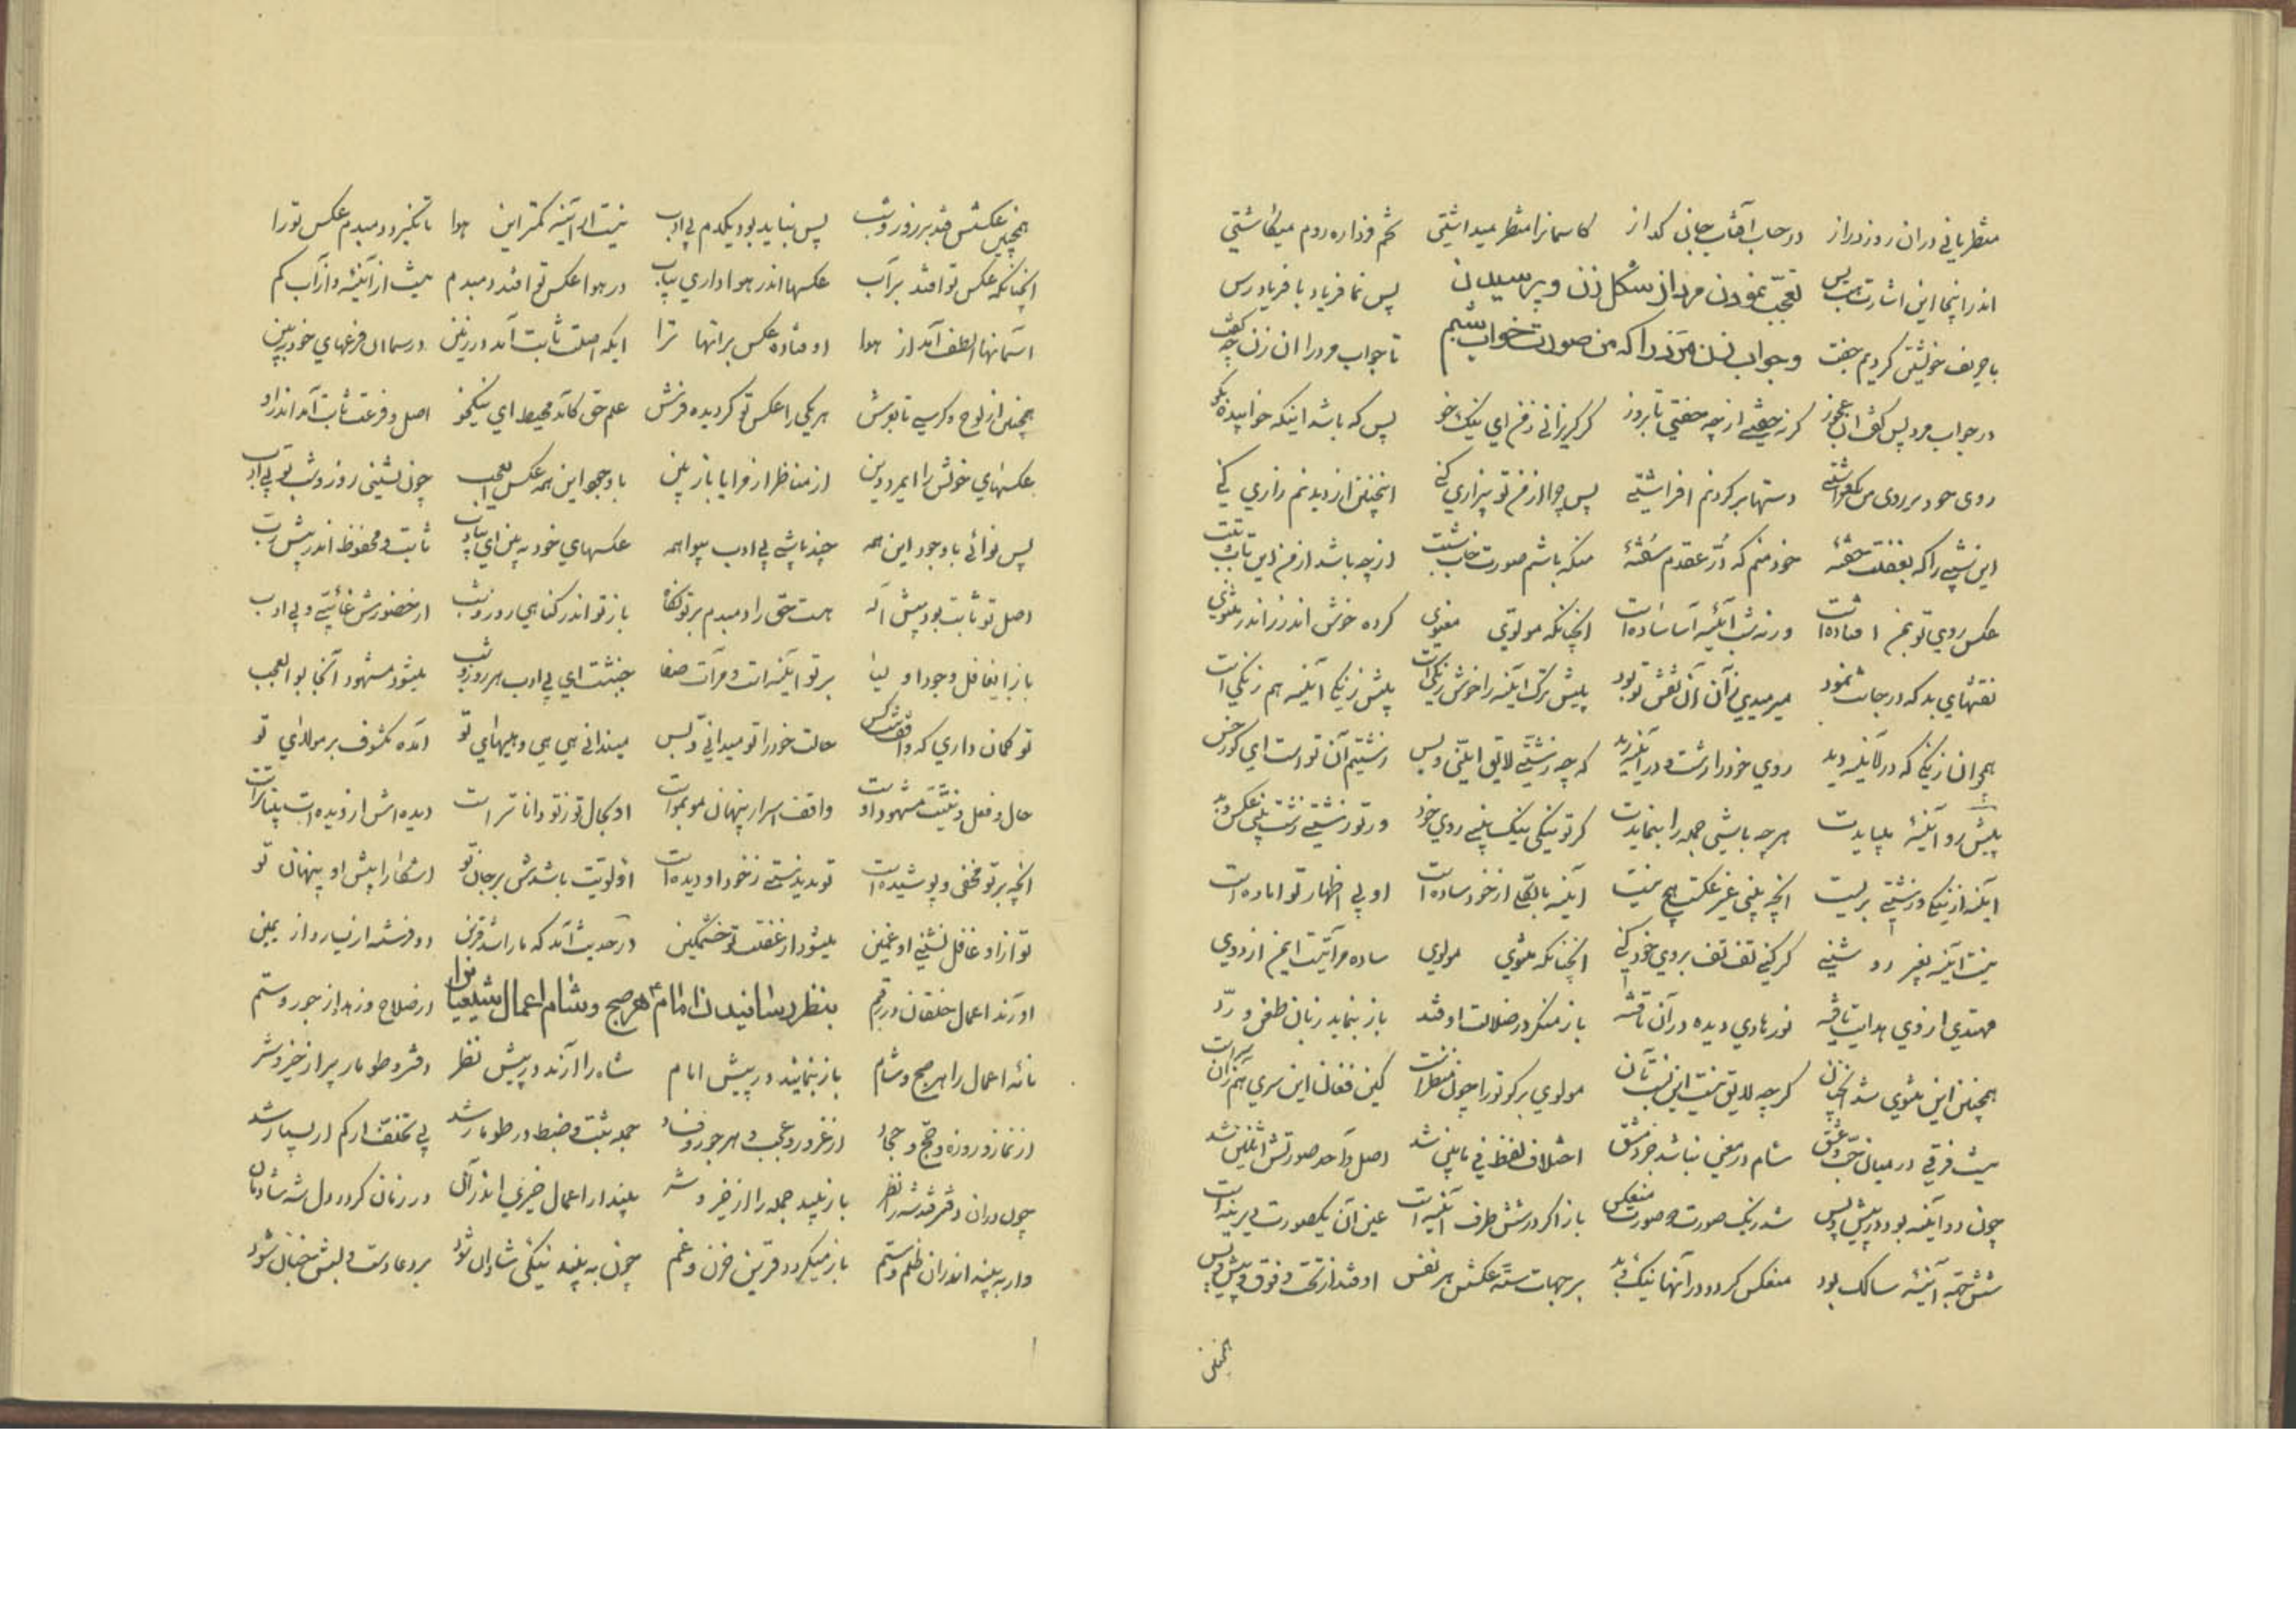 منظر یابی در ان روز دراز در حساب آفتاب جان گداز کاسمانرا منظر میداشتی تخم فردا ره روم میکاشتی
اندر اینجا این اشارت پس تعجّب نمودن مرد از شکل زن و پرسیدن پس نما فریاد با فریادرس
با حریف خویشتن کردیم جفت وجواب زن مرد را که من صورت خواب تا جواب مرد را ان زن چه گفت
در جواب مرد پس گفت ان عجوز از چه خفتی تا بروز گر گریزانی ز من ای نیک خو پس که باشد اینکه خوابیده بگو
روی خود بر روی من دستها بر گردنم افراشتی پس چرا از من تو بیزاری کنی اینچنین از دیدنم زاری کنی
این شبی را که بغفلت خفتهٔ خود منم که دُرّ عقدم سُفتهٔ منکه باشم صورت از چه باشد از من این
عکس روی تو بمن افتاده است ورنه شب آئینه آسا ساده است انچنانکه مولوی معنوی کرده خوش اندرز اندر مثنوی
نقشهای بد که در جانت نمود میرمیدی زآن آن نقش تو بود پیش ترک آینه را خوش رنگی است پیش زنگی آینه هم زنگی است
همچو ان زنگی که در آینه دید روی خود را زشت و در آینه رید که چه زشتی لایق اینی و بس زشتیم آن تو است ای کور خس
پیش رو آینهٔ هر چه باشی جمله را بنمایدت گر تو نیکی نیک بینی روی خود ور تو زشتی زشت بینی عکس بد
آینه از نیکی و زشتی بریست انچه بینی غیر عکست هیچ نیست آینه از خود ساده است او پی اظهار تو اماده است
نیست آینه بغیر رو شنی گر کنی تف تف بروی خود کنی انچنانکه مثنوی مولوی ساده مرآتیست ایمن از دوی
مهتدی از وی هدایت یافته نور هادی دیده در آن تافته باز منکر در ضلالت اوفتد باز بنماید زبان طعن و ردّ
همچنین این مثنوی شد گر چه لایق نیست این مولوی بر گو تو را چون منظر است کین فغان این سری هم زآن سراست
نیست فرقی در میان حبّ و عشق شام در معنی نباشد جز دمشق اختلاف لفظ فی مابین شد اصل واحد صورتش اثنین شد
چون دو آینه بود در پیش و پس شد ز یک صورت دو صورت منعکس باز اگر در شش طرف آینه است عین آن یکصورت دیرینه است
شش جهة آینهٔ سالک بود منعکس گردد در آنها نیک و بد بر جهات ستّه عکسش هر نفس اوفتد از تحت و فوق و پیش و پس
همچنین
همچنین عکسش فتد بر روز و شب پس نباید بود یکدم بی ادب نیست از آینه کمتر این هوا تا نگیرد دمبدم عکس تو را
انچنانکه عکس تو افتد بر آب عکسها اندر هوا داری بیاب در هوا عکس تو افتد دمبدم نیست از آینه و از آب کم
اسمانها الطف آمد از هوا اوفتاده عکس بر انها ترا ایکه اصلت ثابت آمد در زمین در سما ان فرعهای خود ببین
همچنین از لوح و کرسی تا بعرش هر یکی را عکس تو گردیده فرش علم حق کآمد محیط ای نیکخو اصل و فرعت ثابت آمد اندر او
عکسهای خویش را ایمرد دین از مناظر از مرایا باز بین با وجود این همه عکس العجب چون نشینی روز و شب تو بی ادب
پس توائی با وجود این همه چند باشی بی ادب بیواهمه عکسهای خود ببین ای ثابت و محفوظ اندر پیش رب
اصل تو ثابت بود پیش اله هست حق را دمبدم بر تو نگاه باز تو اندر گناهی روز و شب از حضورش غائبی و بی ادب
باز ایغافل وجود اولیا بر تو آینه است و مرآت صفا خبثت ای بی ادب هر روز و شب میشود مشهود آنجا بو العجب
تو گمان داری که واقف نیست کس حالت خود را تو میدانی و بس میندانی هی هی و هیهای تو آمده مکشوف بر مولای تو
حال و فعل و نیّتت مشهود اوست واقف اسرار پنهان موبموست او بحال تو ز تو داناتر است دیده اش از دیده ات بیناتر است
انچه بر تو مخفی و پوشیده است تو ندیدستی ز خود او دیده است اولویت باشدش بر جان تو اشکارا پیش او پنهان تو
تو از او غافل نشینی او غمین میشود از غفلت تو خشمگین در حدیث آمد که ما را شد قرین دو فرشته از یسار و از یمین
آورند اعمال خلقان در رقم بنظر رسانیدن امام هر صبح و شام اعمال شیعیان از صلاح و زهد از جور و ستم
نامه اعمال را هر صبح و شام باز بنمایند در پیش امام شاه را ارند در پیش نظر دفتر و طومار پر از خیر و شر
از نماز و روزه و حجّ و جهاد از غرور و عجب و هر جور و فساد جمله ثبت و ضبط در طومار شد بی تخلّف از کم از بسیار شد
چون در ان دفتر فتد شه را نظر باز بیند جمله را از خیر و شر بیند ار اعمال خیری اندر آن در زمان گردد دل شه شادمان
وار به بیند اندران ظلم و ستم باز میگردد قرین حزن و غم چون به بیند نیکئی شادان شود بر دعا دست و لبش جنبان شود